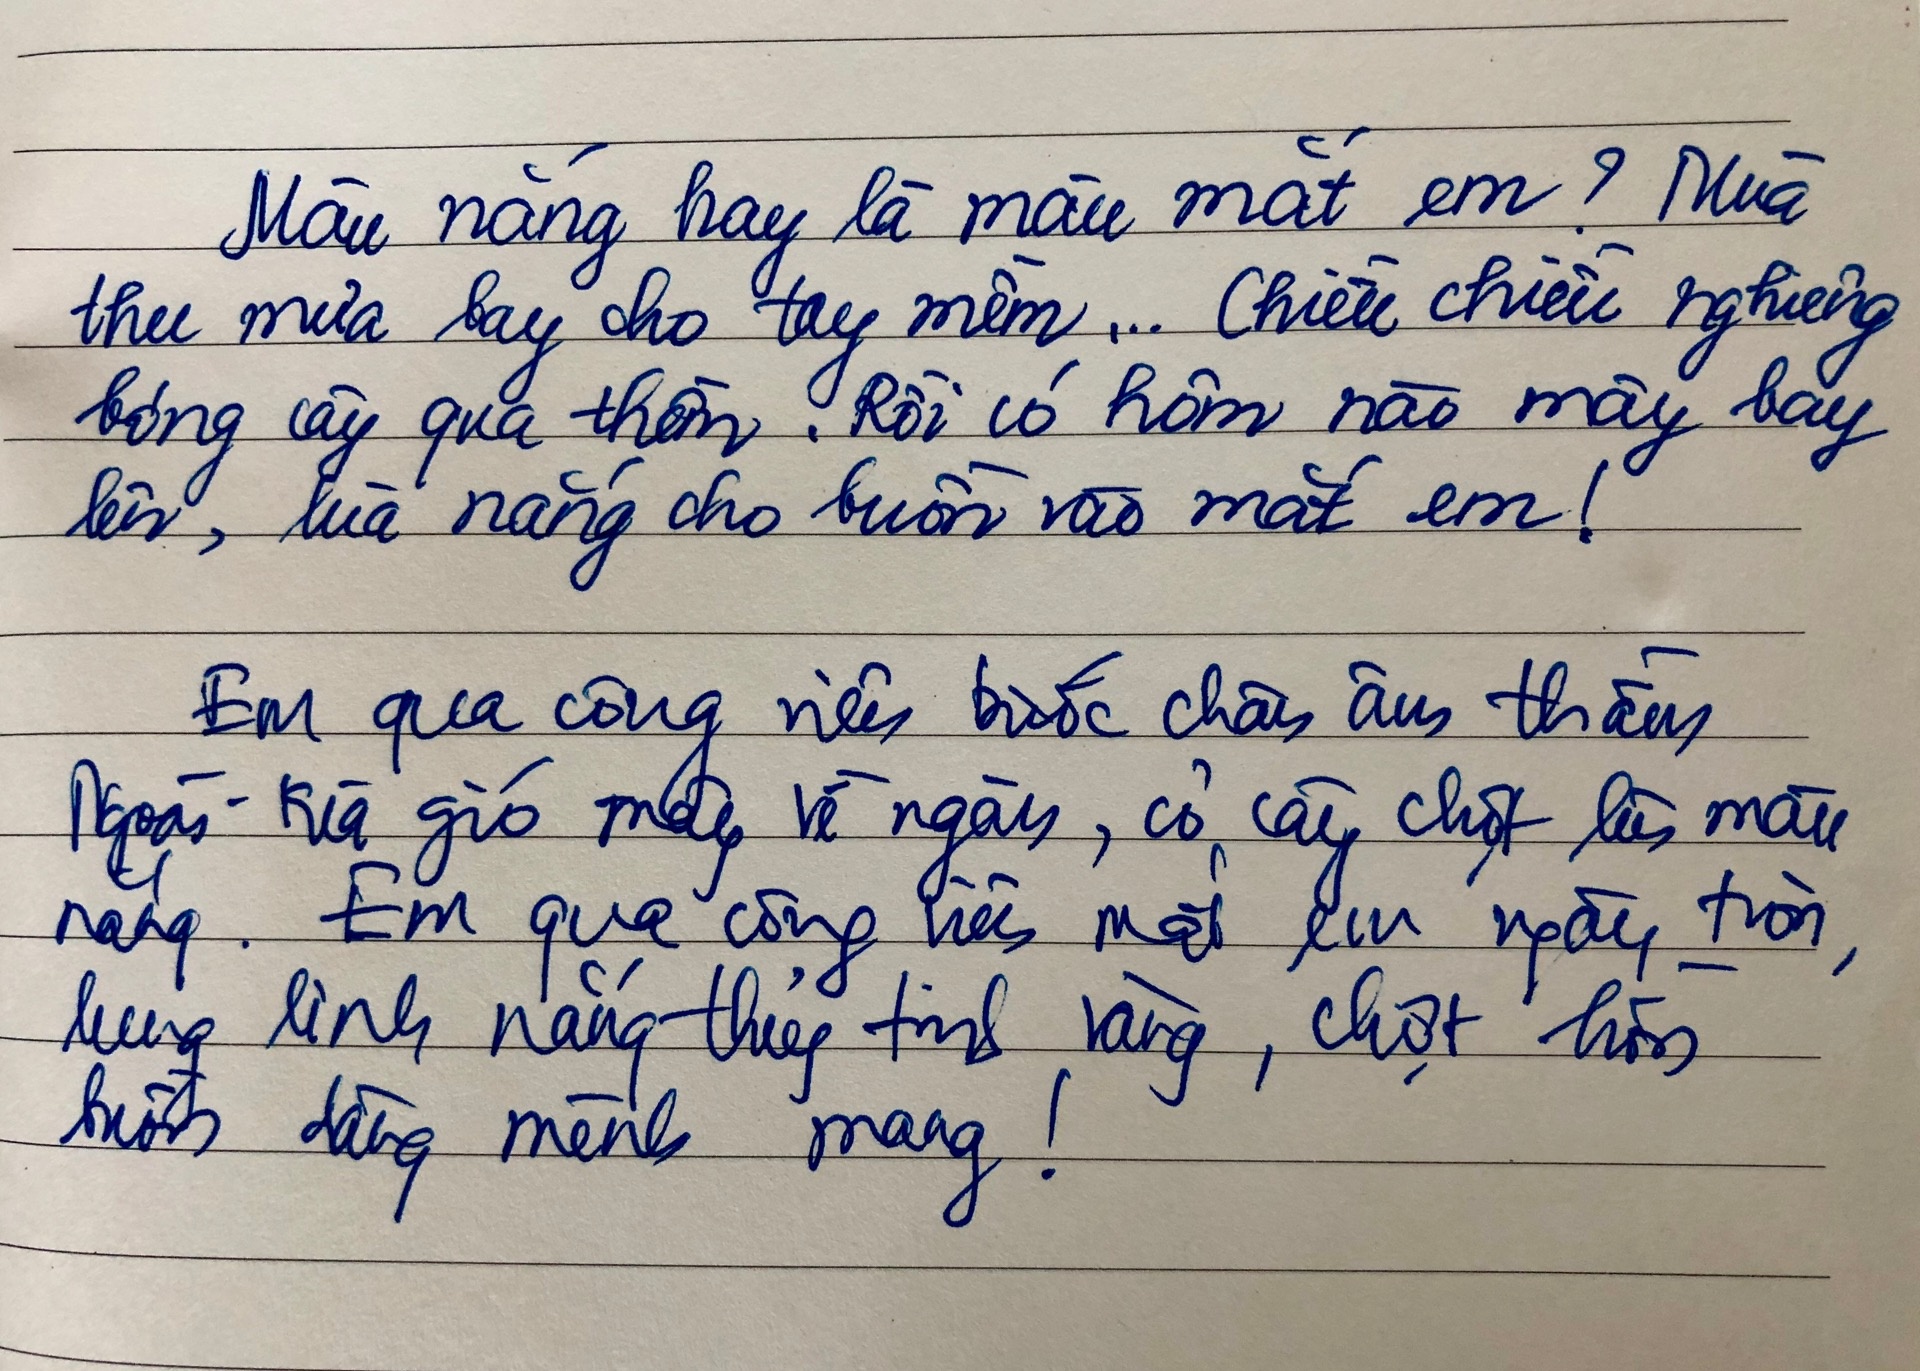 Màu nắng hay là màu mắt em? Mùa
thu mưa bay cho tay mềm... Chiều chiều nghiêng
bóng cây qua thềm. Rồi có hôm nào mây bay
lên, lùa nắng cho buồn vào mắt em!
Em qua công viên bước chân âm thầm
Ngoài kia gió mây về ngàn, cỏ cây chợt lên màu
nắng. Em qua công viên mắt em ngây tròn,
lung linh nắng thủy tinh vàng, chợt hồn
buồn dâng mênh mang!